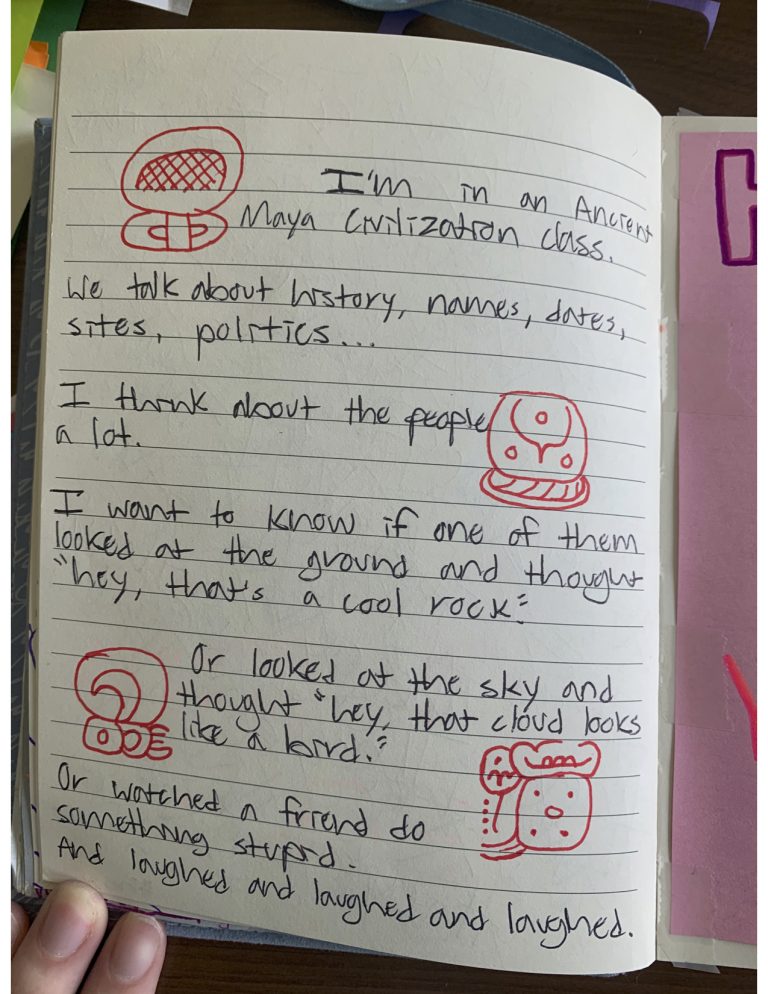 I'm in an Ancient
Maya Civilization class.
We talk about history, names, dates,
sites, politics...
I think about the people
a lot.
I want to know if one of them
looked at the ground and thought
"hey, that's a cool rock."
Or looked at the sky and
thought "hey, that cloud looks
like a bird."
Or watched a friend do
something stupid.
And laughed and laughed and laughed.